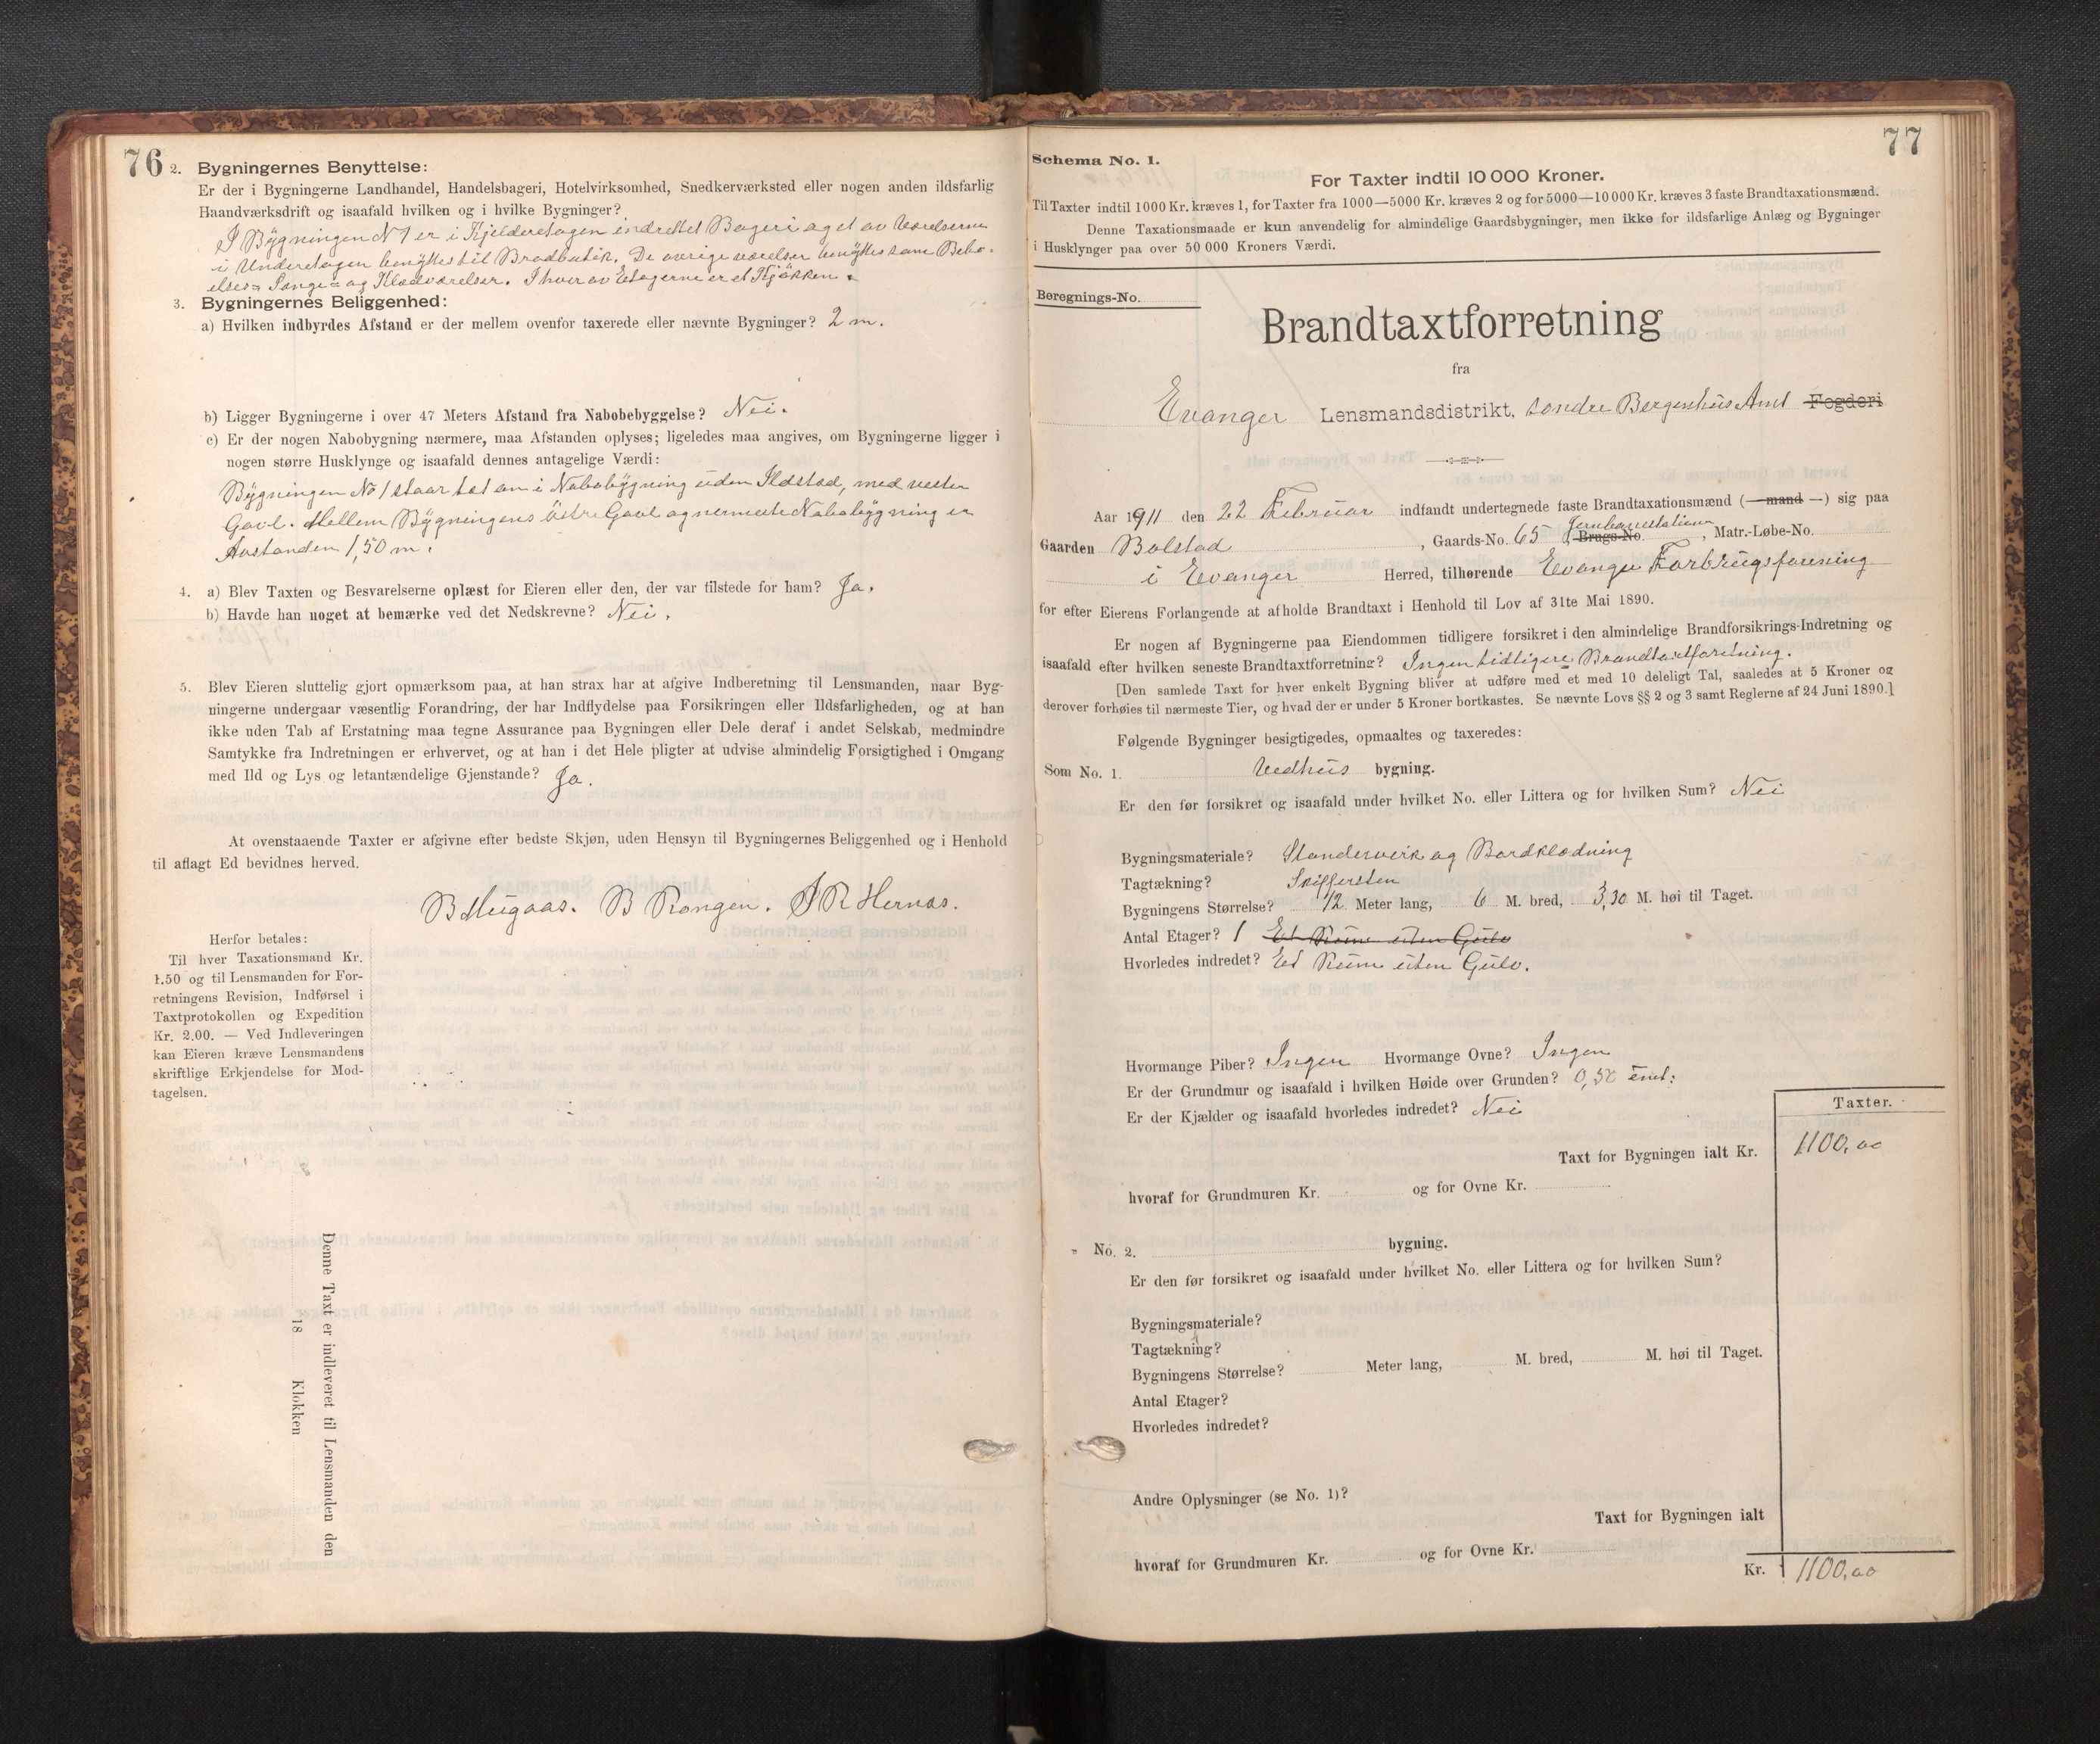 76
2. Bygningernes Benyttelse:
Er der i Bygningerne Landhandel, Handelsbageri, Hotelvirksomhed, Snedkerværksted eller nogen anden ildsfarlig
Haandværksdrift og isaafald hvilken og i hvilke Bygninger?
I Bygningen No 1 er i Kjelderetagen indrettet Bageri og et av Værelserne
i Underetagen benyttes til Brødbutik. De øvrige værelser benyttes som Bebo-
elses= Senge= og Klædværelser. I hver av Etagerne er et Kjøkken.
3. Bygningernes Beliggenhed:
a) Hvilken indbyrdes Afstand er der mellem ovenfor taxerede eller nævnte Bygninger? 2 m.
b) Ligger Bygningerne i over 47 Meters Afstand fra Nabobebyggelse? Nei.
c) Er der nogen Nabobygning nærmere, maa Afstanden oplyses; ligeledes maa angives, om Bygningerne ligger i
nogen større Husklynge og isaafald dennes antagelige Værdi:
Bygningen No 1 staar tæt om i Nabobygning uden Ildsted, med vestre
Gavl. Mellem Bygningens östre Gavl og nermeste Nabobyggning er
Avstanden 1,50 m.
4. a) Blev Taxten og Besvarelserne oplæst for Eieren eller den, der var tilstede for ham? Ja.
b) Havde han noget at bemærke ved det Nedskrevne? Nei.
5. Blev Eieren sluttelig gjort opmærksom paa, at han strax har at afgive Indberetning til Lensmanden, naar Byg-
ningerne undergaar væsentlig Forandring, der har Indflydelse paa Forsikringen eller Ildsfarligheden, og at han
ikke uden Tab af Erstatning maa tegne Assurance paa Bygningen eller Dele deraf i andet Selskab, medmindre
Samtykke fra Indretningen er erhvervet, og at han i det Hele pligter at udvise almindelig Forsigtighed i Omgang
med Ild og Lys og letantændelige Gjenstande? Ja.
At ovenstaaende Taxter er afgivne efter bedste Skjøn, uden Hensyn til Bygningernes Beliggenhed og i Henhold
til aflagt Ed bevidnes herved.
B Mugaas. B Rongen. I R Hernæs.
Herfor betales:
Til hver Taxationsmand Kr.
1.50 og til Lensmanden for For-
retningens Revision, Indførsel i
Taxtprotokollen og Expedition
Kr. 2.00. — Ved Indleveringen
kan Eieren kræve Lensmandens
skriftlige Erkjendelse for Mod-
tagelsen.
Denne Taxt er indleveret til Lensmanden den
18 Klokken
77
Schema No. 1.
For Taxter indtil 10 000 Kroner.
Til Taxter indtil 1000 Kr. kræves 1, for Taxter fra 1000—5000 Kr. kræves 2 og for 5000—10000 Kr. kræves 3 faste Brandtaxationsmænd.
Denne Taxationsmaade er kun anvendelig for almindelige Gaardsbygninger, men ikke for ildsfarlige Anlæg og Bygninger
i Husklynger paa over 50 000 Kroners Værdi.
Beregnings-No.
Brandtaxtforretning
fra
Evanger Lensmandsdistrikt, søndre Bergenhus Amt Fogderi
Aar 1911 den 22 Februar indfandt undertegnede faste Brandtaxationsmænd (— mand —) sig paa
Gaarden Bolstad, Gaards-No. 65 Jernbanestation Brugs-No., Matr.-Løbe-No.
i Evanger Herred, tilhørende Evanger Forbrugsforening
for efter Eierens Forlangende at afholde Brandtaxt i Henhold til Lov af 31te Mai 1890.
Er nogen af Bygningerne paa Eiendommen tidligere forsikret i den almindelige Brandforsikrings-Indretning og
isaafald efter hvilken seneste Brandtaxtforretning? Ingen tidligere Brandtaxtforetning.
[Den samlede Taxt for hver enkelt Bygning bliver at udføre med et med 10 deleligt Tal, saaledes at 5 Kroner og
derover forhøies til nærmeste Tier, og hvad der er under 5 Kroner bortkastes. Se nævnte Lovs §§ 2 og 3 samt Reglerne af 24 Juni 1890.]
Følgende Bygninger besigtigedes, opmaaltes og taxeredes:
Som No. 1. Vedhus bygning.
Er den før forsikret og isaafald under hvilket No. eller Littera og for hvilken Sum? Nei
Bygningsmateriale? Standerverk og Bordklædning
Tagtækning? Skiffersten
Bygningens Størrelse? 12 Meter lang, 6 M. bred, 3,30 M. høi til Taget.
Antal Etager? 1 Et Rum uten Gulv
Hvorledes indredet? Et Rum uten Gulv.
Hvormange Piber? Ingen Hvormange Ovne? Ingen
Er der Grundmur og isaafald i hvilken Høide over Grunden? 0,50
Er der Kjælder og isaafald hvorledes indredet? Nei
Taxter.
Taxt for Bygningen ialt Kr. 1100,00
hvoraf for Grundmuren Kr. og for Ovne Kr.
„ No. 2. bygning.
Er den før forsikret og isaafald under hvilket No. eller Littera og for hvilken Sum?
Bygningsmateriale?
Tagtækning?
Bygningens Størrelse? Meter lang, M. bred, M. høi til Taget.
Antal Etager?
Hvorledes indredet?
Andre Oplysninger (se No. 1)?
Taxt for Bygningen ialt
hvoraf for Grundmuren Kr. og for Ovne Kr.
Kr. 1100,00